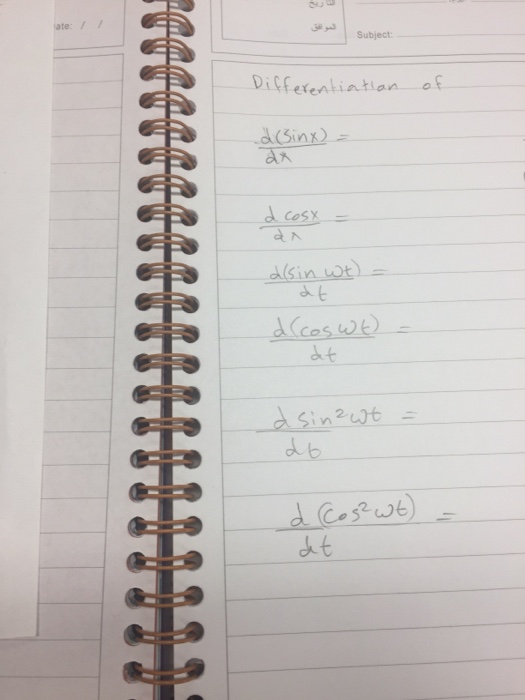 ate: / /
الموافق
Subject:
Differentiation of
d(sinx) =
dx
d cosx =
dx
d(sin wt) =
dt
d(cos wt) =
dt
d sin²wt =
dt
d (cos²wt) =
dt